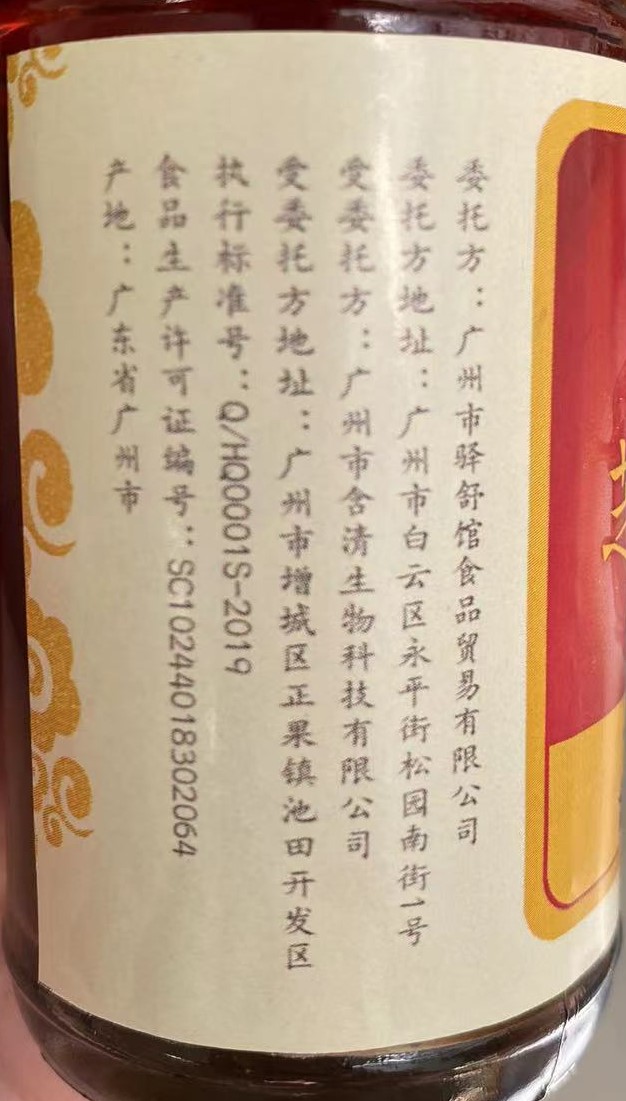 委托方：广州市驿舒馆食品贸易有限公司
委托方地址：广州市白云区永平街松园南街1号
受委托方：广州市含清生物科技有限公司
受委托方地址：广州市增城区正果镇池田开发区
执行标准号：Q/HQ0001S-2019
食品生产许可证编号：SC10244018302064
产地：广东省广州市